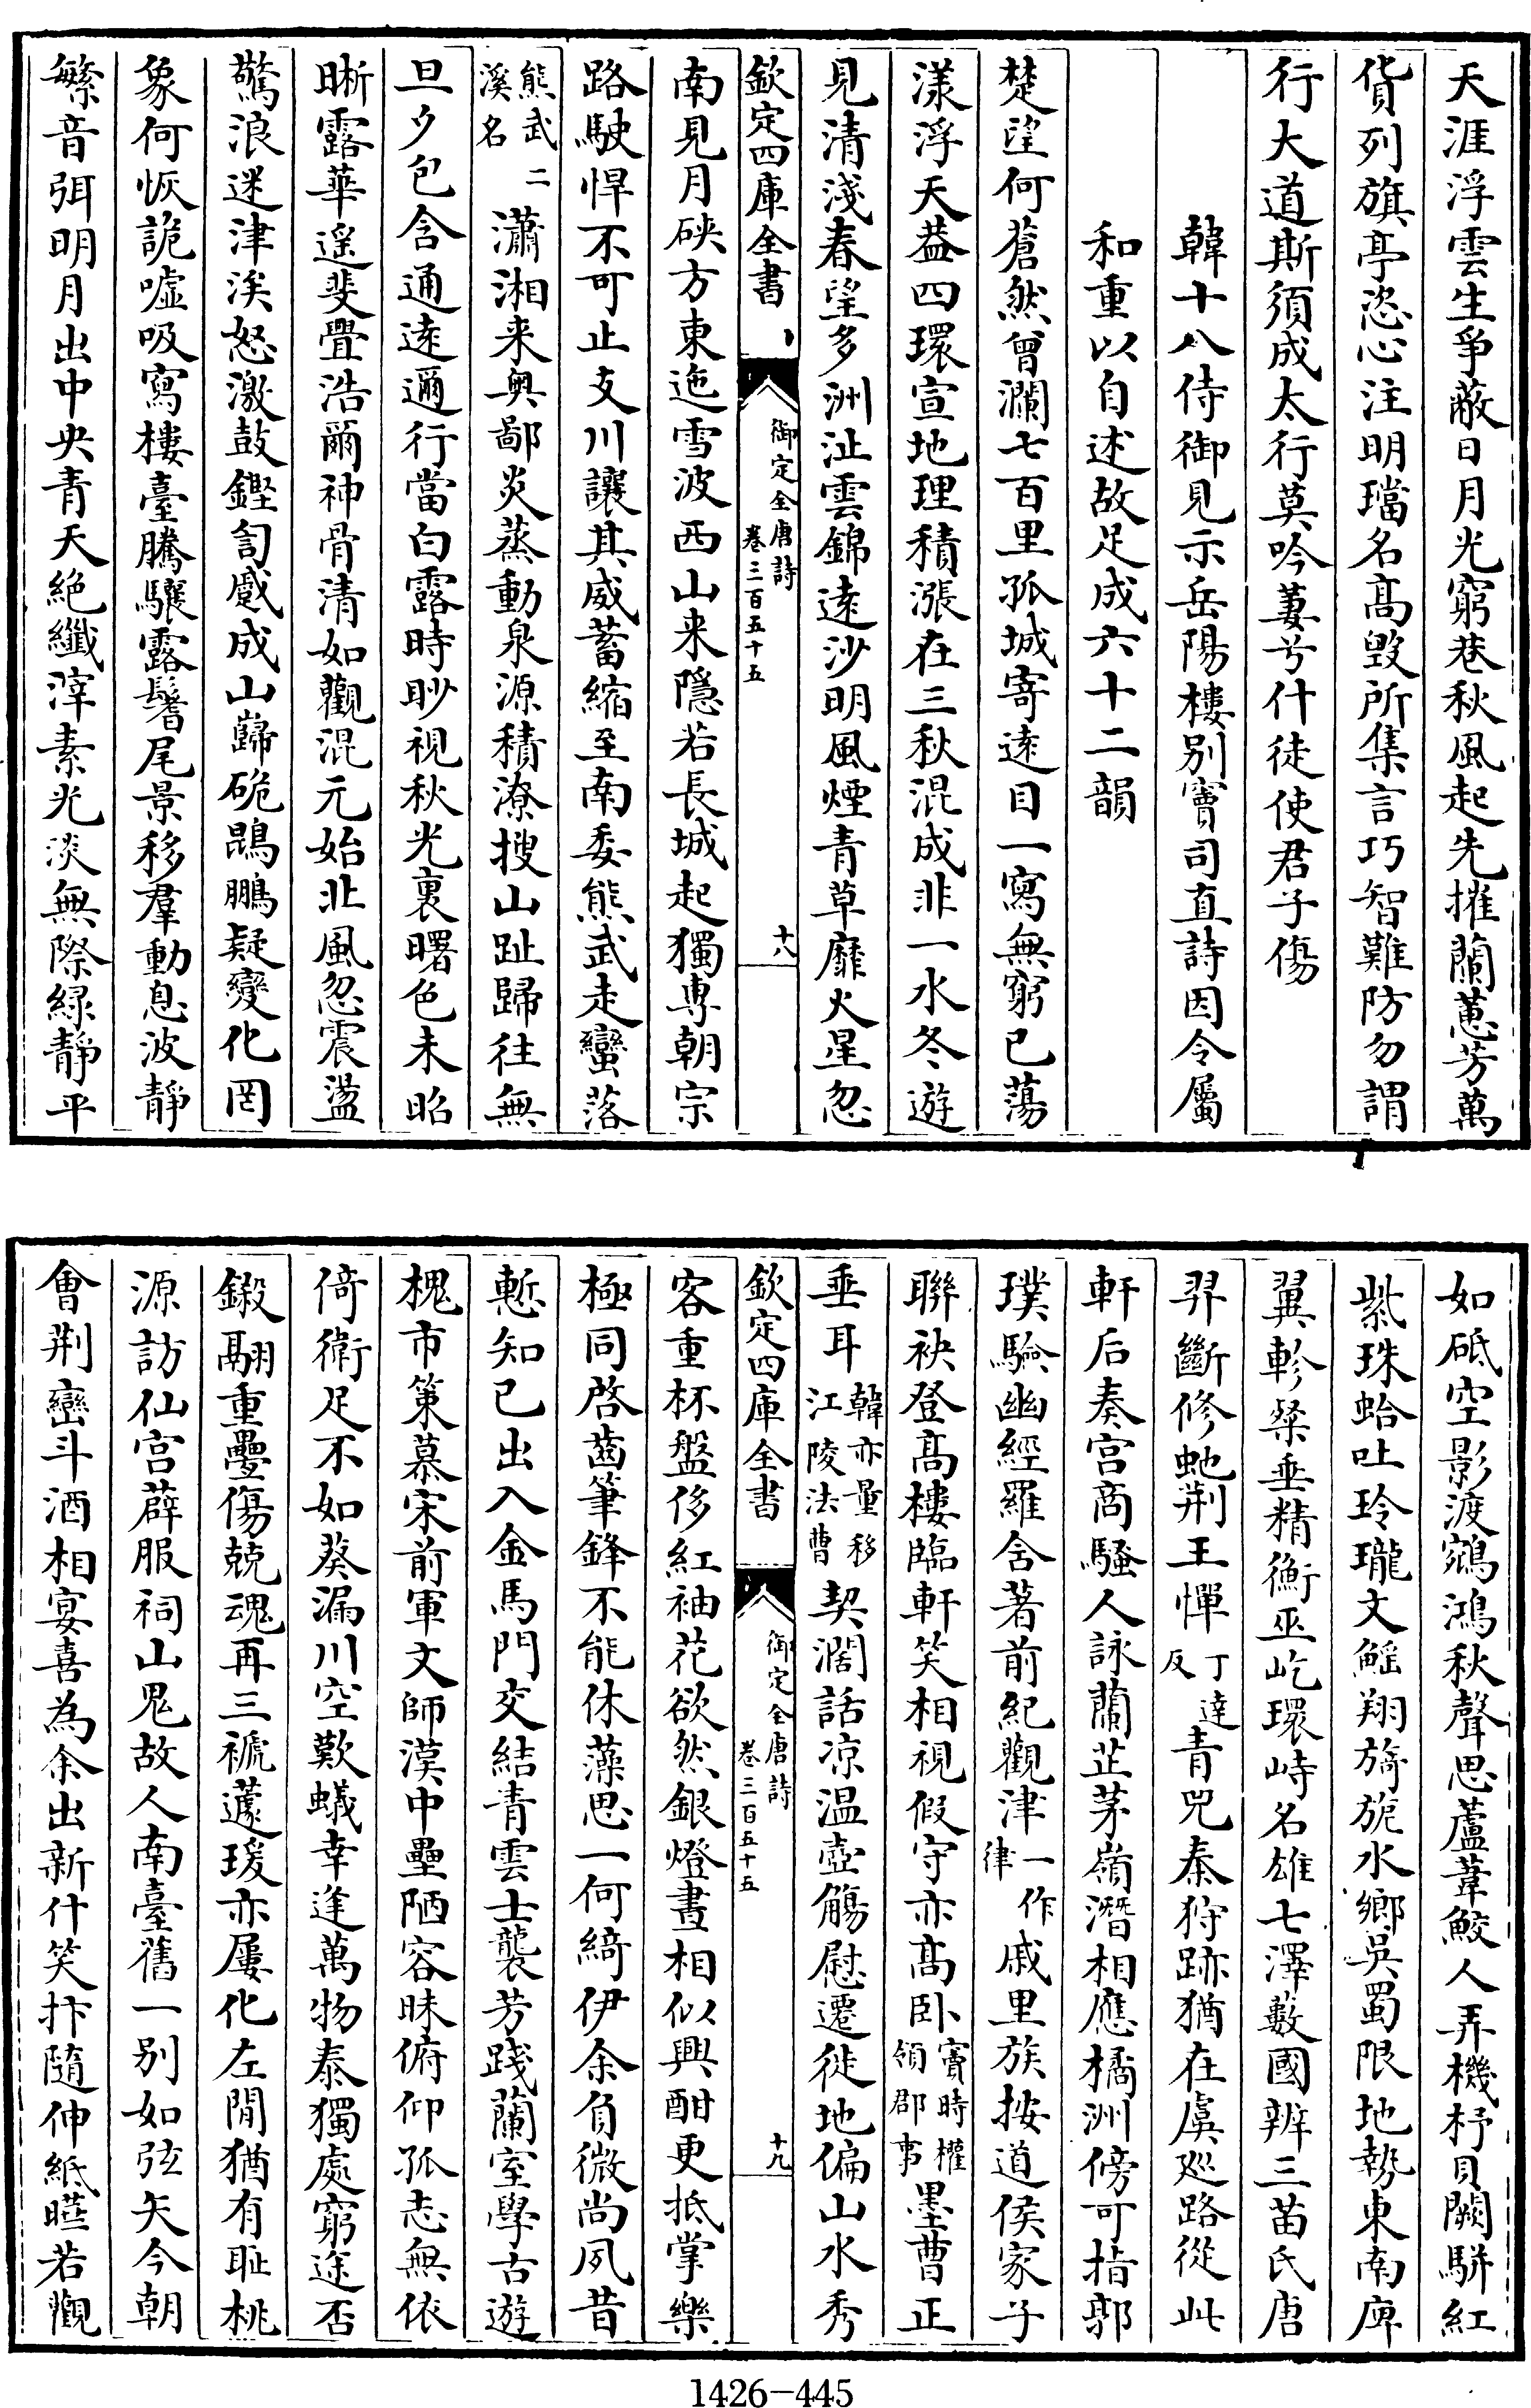 天涯浮雲生爭蔽日月光窮巷秋風起先摧蘭蕙芳萬
貨列旗亭恣心注明璫名髙毁所集言巧智難防勿謂
行大道斯須成太行莫吟萋兮什徒使君子傷
韓十八侍御見示岳陽樓别竇司直詩因令屬
和重以自述故足成六十二韻
楚望何蒼然曾瀾七百里孤城寄遠目一寫無窮已蕩
漾浮天葢四環宣地理積漲在三秋混成非一水冬遊
見清淺春望多洲沚雲錦遠沙明風煙青草靡火星忽
欽定四庫全書
御定全唐詩
卷三百五十五
十八
南見月硤方東迤雪波西山来隱若長城起獨専朝宗
路駛悍不可止支川讓其威蓄縮至南委熊武走蠻落
熊武二溪名
瀟湘来奥鄙炎蒸動泉源積潦搜山趾歸往無
旦夕包含通逺邇行當白露時眇視秋光裏曙色未昭
晰露華遥斐亹浩爾神骨清如觀混元始北風忽震盪
驚浪迷津涘怒激鼓鏗訇蹙成山巋硊鵾鵬疑變化罔
象何恢詭嘘吸寫樓臺騰驤露鬐尾景移羣動息波静
繁音弭明月出中央青天絶纖滓素光淡無際緑静平
如砥空影渡鵷鴻秋聲思蘆葦鮫人弄機杼貝闕駢紅
紫珠蛤吐玲瓏文鰩翔旖旎水鄉吳蜀限地勢東南庳
翼軫粲垂精衡巫屹環峙名雄七澤藪國辨三苗氏唐
羿斷修虵荆王憚
丁達反
青兕秦狩跡猶在虞廵路從此
軒后奏宫商騷人詠蘭芷茅嶺潛相應橘洲傍可指郭
璞驗幽經羅含著前紀觀津
一作律
戚里族按道侯家子
聯袂登髙樓臨軒笑相視假守亦髙卧
竇時權領郡事
墨曹正
垂耳
韓亦量移江陵法曹
契濶話凉温壺觴慰遷徙地偏山水秀
欽定四庫全書
御定全唐詩
卷三百五十五
十九
客重杯盤侈紅袖花欲然銀燈晝相似興酣更抵掌樂
極同啓齒筆鋒不能休藻思一何綺伊余負微尚夙昔
慙知已出入金馬門交結青雲士襲芳踐蘭室學古遊
槐市策慕宋前軍文師漢中壘陋容昧俯仰孤志無依
倚衛足不如葵漏川空歎蟻幸逢萬物泰獨處窮途否
鍛翮重疊傷兢魂再三禠蘧瑗亦屢化左閒猶有耻桃
源訪仙宫薜服祠山鬼故人南臺舊一别如弦矢今朝
會荆巒斗酒相宴喜為余出新什笑抃隨伸紙曀若觀
1426-445